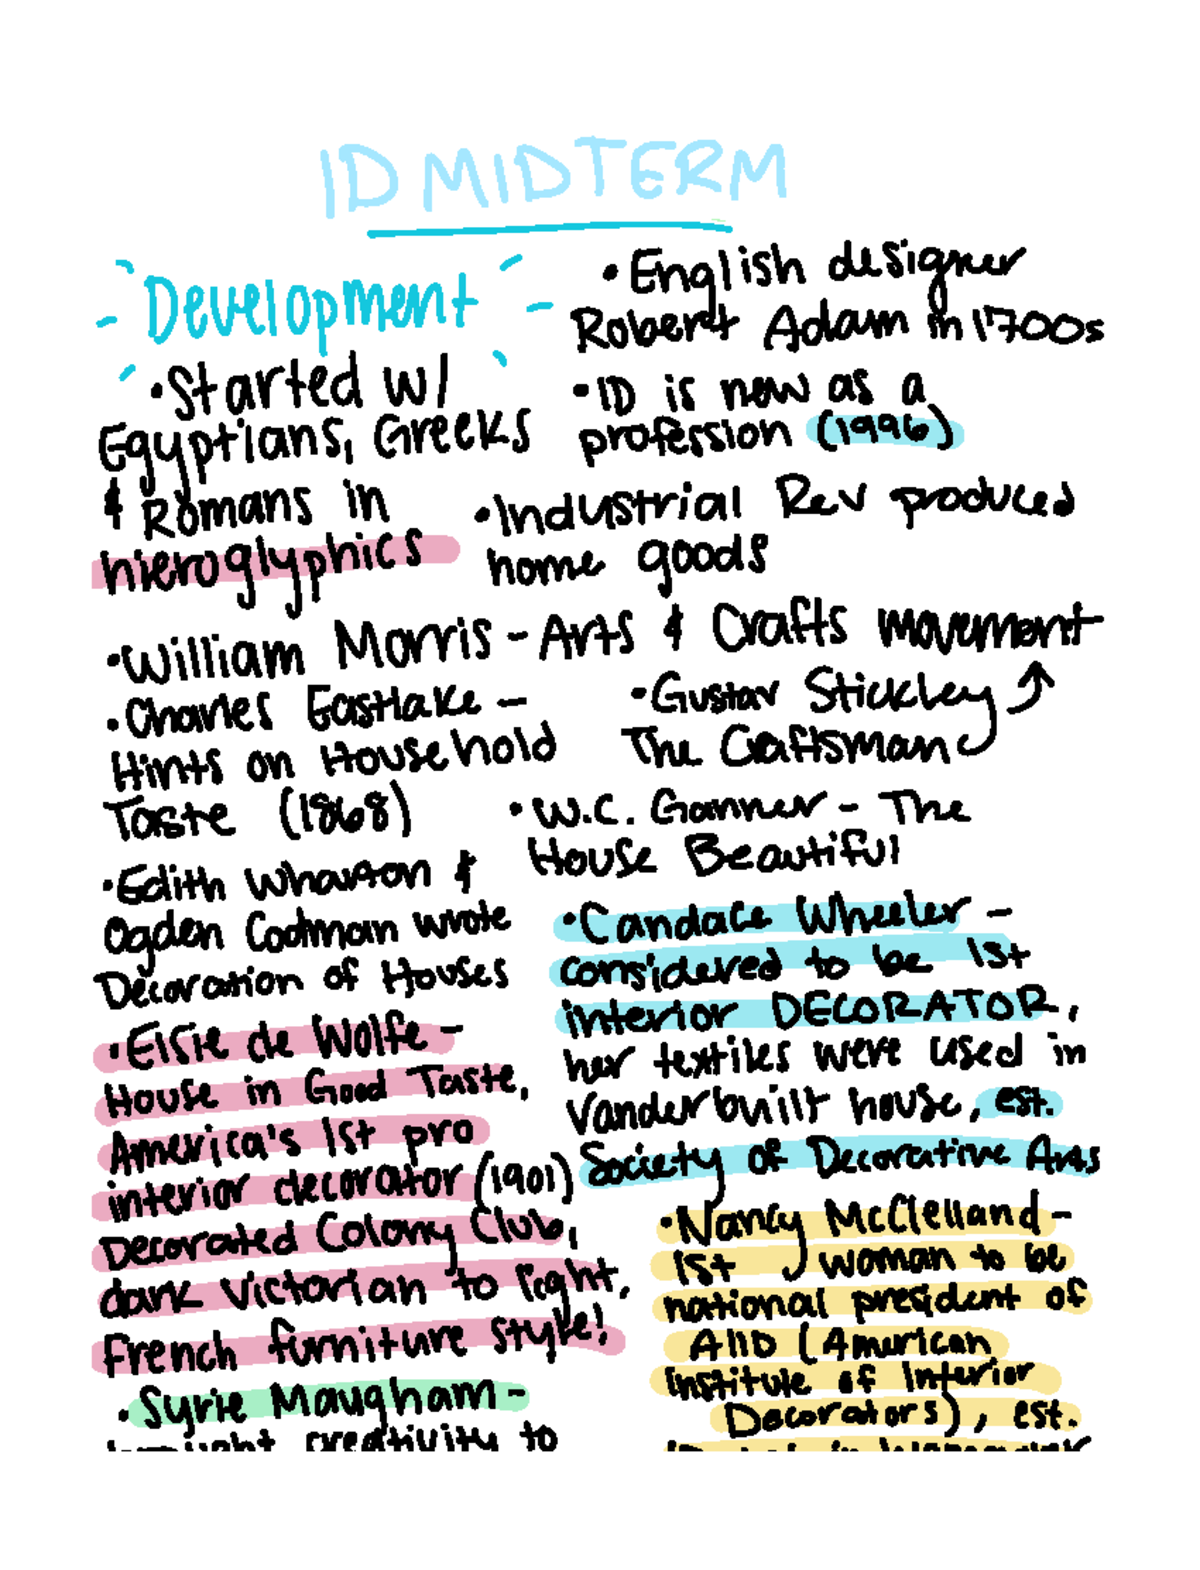 ID MIDTERM
Development
•Started w/
Egyptians, Greeks
& Romans in
hieroglyphics
•English designer
Robert Adam in 1700s
•ID is new as a
profession (1996)
•Industrial Rev produced
home goods
•William Morris - Arts & Crafts movement
•Charles Eastlake -
Hints on Household
Taste (1868)
•Gustav Stickley
The Craftsman
•W.C. Ganner - The
House Beautiful
•Edith Wharton &
Ogden Codman wrote
Decoration of Houses
•Candace Wheeler -
considered to be 1st
interior DECORATOR,
her textiles were used in
Vanderbuilt house, est.
Society of Decorative Arts
•Elsie de Wolfe -
House in Good Taste,
America's 1st pro
interior decorator (1901)
Decorated Colony Club,
dark Victorian to light,
French furniture style!
•Nancy McClelland -
1st woman to be
national president of
AIID (American
Institute of Interior
Decorators), est.
•Syrie Maugham -
brought creativity to